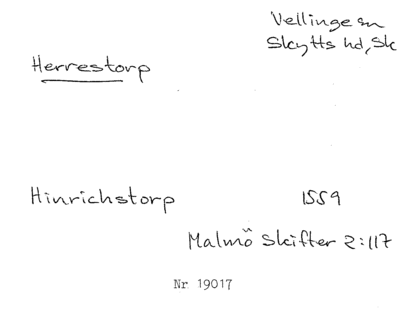 Vellinge sn
Skytts hd, Sk
Herrestorp
Hinrichstorp 1559
Malmö Skifter 2:117
Nr 19017